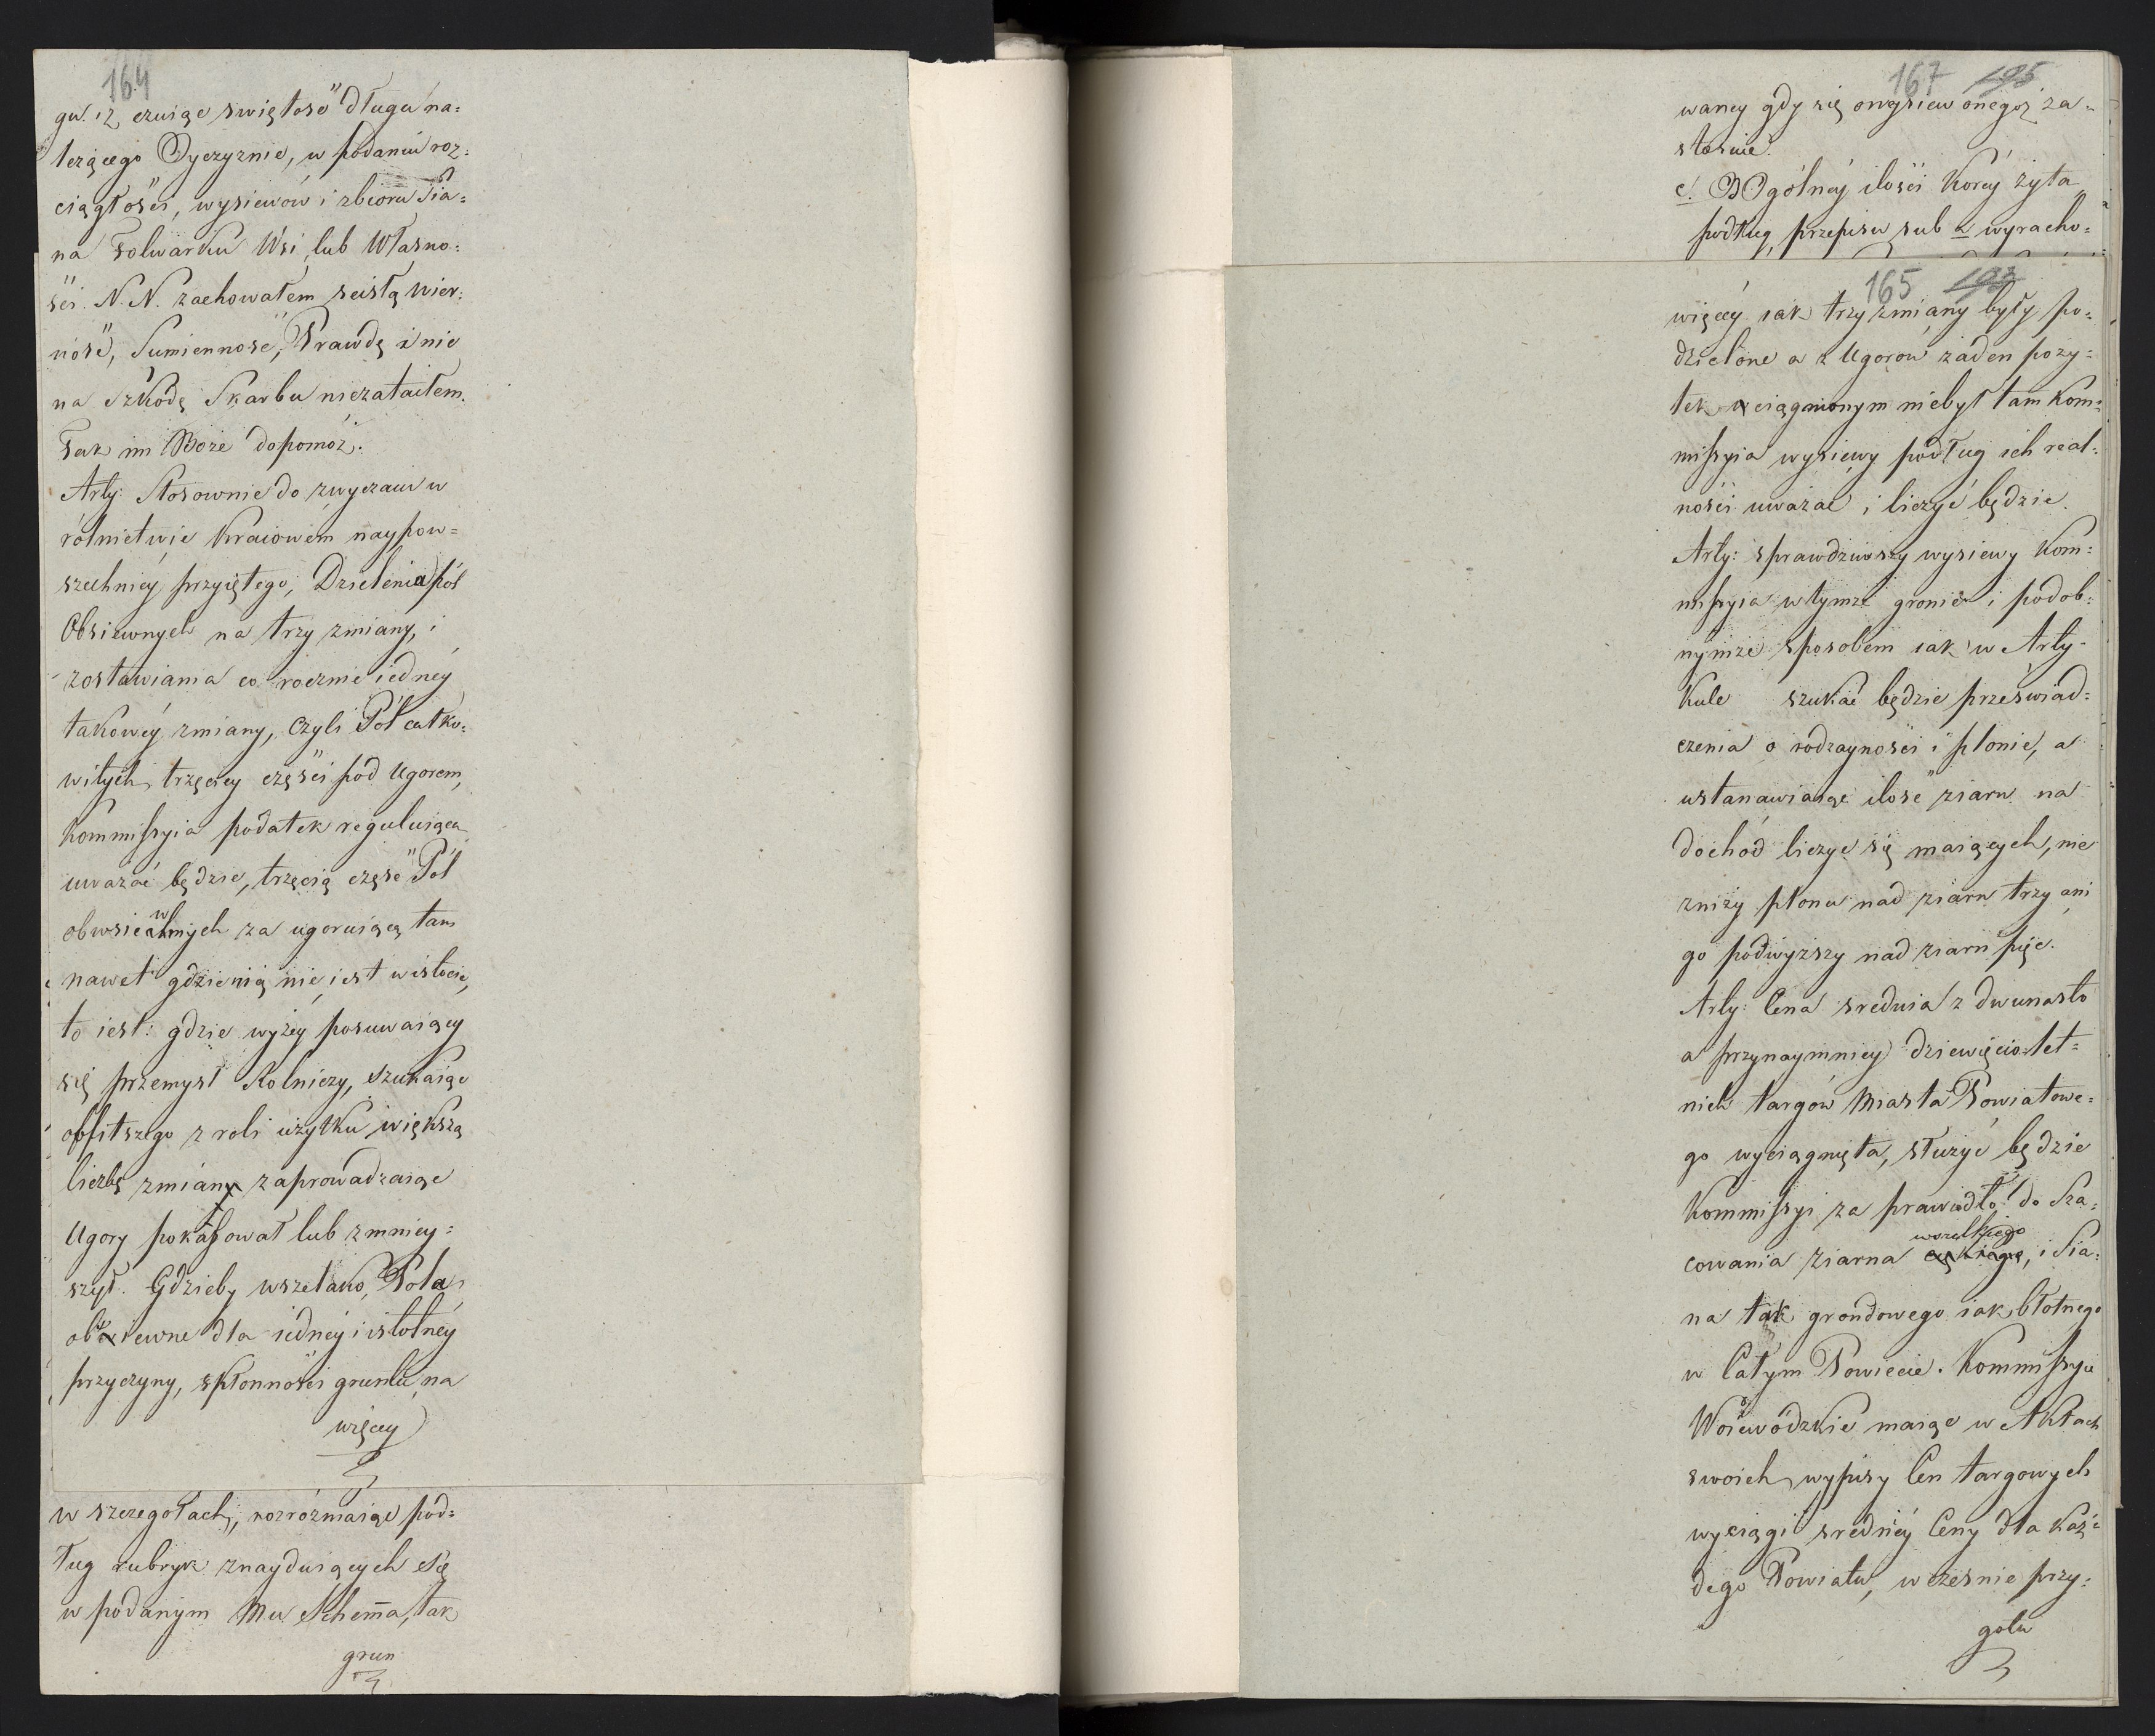 164
gu. iż czuiąc swiętość długu na=
leżącego Oyczyznie, w podaniu roz=
ciągłości, wysiewów i zbioru Sia=
na Folwarku Wsi lub Własno=
ści N. N. zachowałem scisłą wier=
ność, Sumienność, Prawdę i nic
na Szkodę Skarbu niezataiłem.
Tak mi Boże dopomóż.
Arty: Stosownie do zwyczaiu w
rólnictwie Kraiowém naypow=
szechniéy przyiętego, Dzielenia pól
Obsiewnych na trzy zmiany, i
zostawiania co rocznie iednéy
takowéy zmiany, czyli Pół całko=
witych trzęciey części pod Ugorem,
Kommissyia podatek reguluiąca
uważać będzie, trzęcią część Pól
obwsiewnych za ugoruiącą tam
nawet gdzie nią nie iest w istocie,
to iest: gdzie wyżéy posuwaiącey
się przemysł Rolniczy, szukaiąc
obfitszego z roli użytku większą
liczbę zmian zaprowadzaiąc
Ugory pokassował lub zmniey=
szył. Gdzieby wszelako, Pola
obsiewne dla iednéy i istotnéy
przyczyny, skłonności gruntu na
więcey
w szczegółach, rozróżniaiąc pod=
ług rubryk znayduiących się
w podanym Mu Schema, tak
grun
167 195
waney gdy się onysiew onegoż za=
stosuie.
c. W Ogólnéy ilości Korcy żyta
podług przepisu sub a wyracho=
165 193
więcéy iak trzy zmiany były po=
dzielone a z Ugorow żaden poży=
tek ciągnionym niebył tam Kom=
missyia wysiewy podług ich real=
ności uważać i liczyć będzie.
Arty: sprawdziwszy wysiewy Kom=
missyia w tymże gronie i podob=
nymże sposobem iak w Arty=
kule szukać będzie przeświad=
czenia o rodzayności i plonie, a
ustanawiaiąc ilość ziarn na
dochód liczyć się maiących, nie
zniży plonu nad ziarn trzy ani
go podwyższy nad ziarn pięć.
Arty: Cena srednia z dwunasto
a przynaymniey dziewięcio=let=
nich targów Miasta Powiatowe=
go wyciągnięta, służyć będzie
Kommissyi za prawidło do Sza=
cowania ziarna wszelkiego, i Sia=
na tak grondowego iak błotnego
w Całym Powiecie. Kommissye
Woiewódzkie maiąc w Aktach
swoich wypisy Cen targowych
wyciągi sredniéy Ceny dla każ=
dego Powiatu, wcześnie przy=
gotu